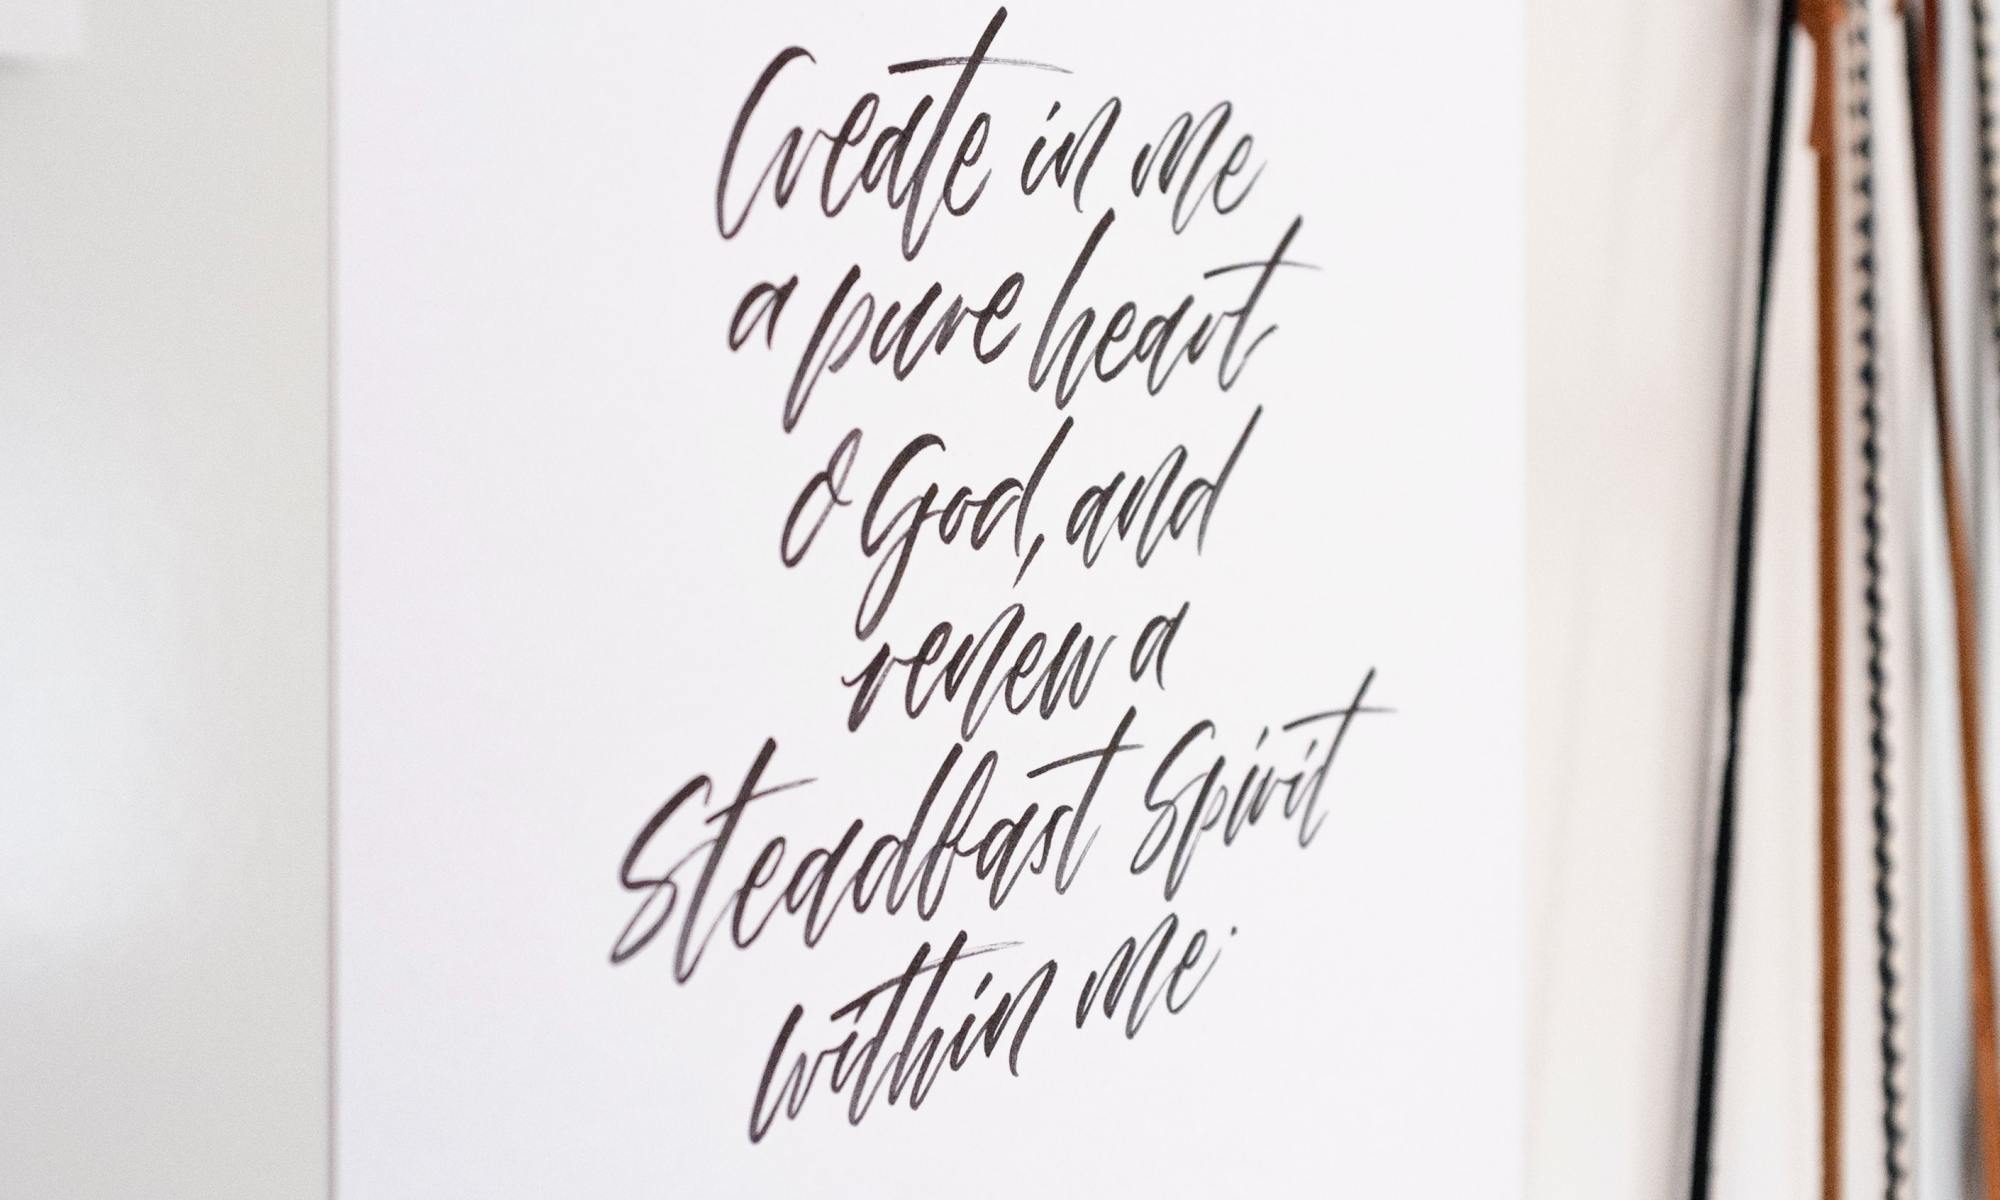 Create in me
a pure heart
O God, and
renew a
Steadfast Spirit
within me.